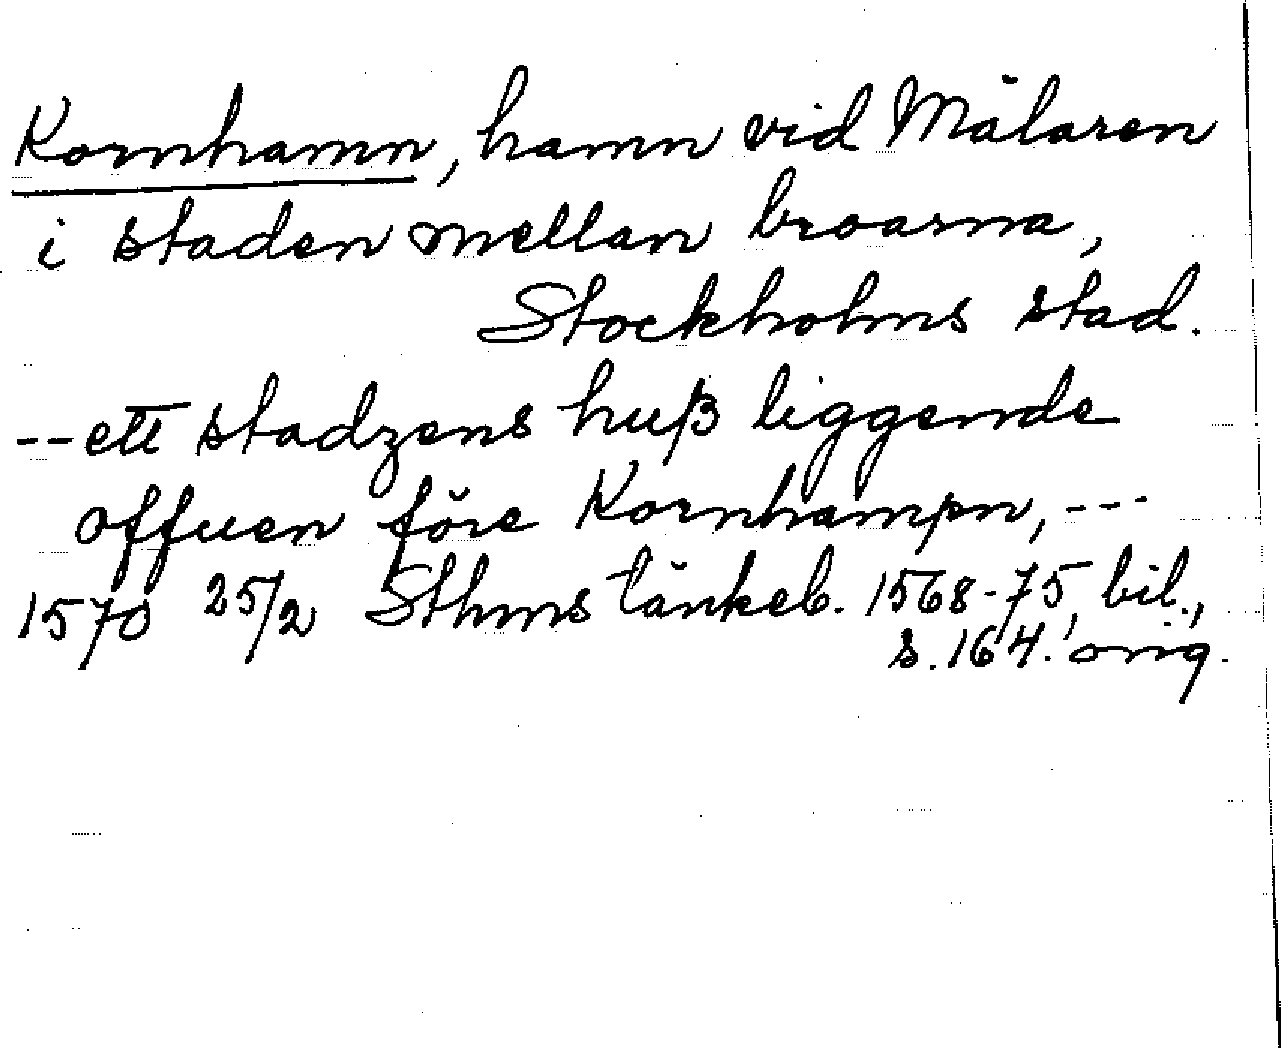 Kornhamn, hamn vid Mälaren
i staden mellan broarna,
Stockholms stad.
--ett stadzens huß liggende
offuen före Kornhampn, ---
1570 25/2 Sthms tänkeb. 1568-75, bil.,
s. 164. orig.